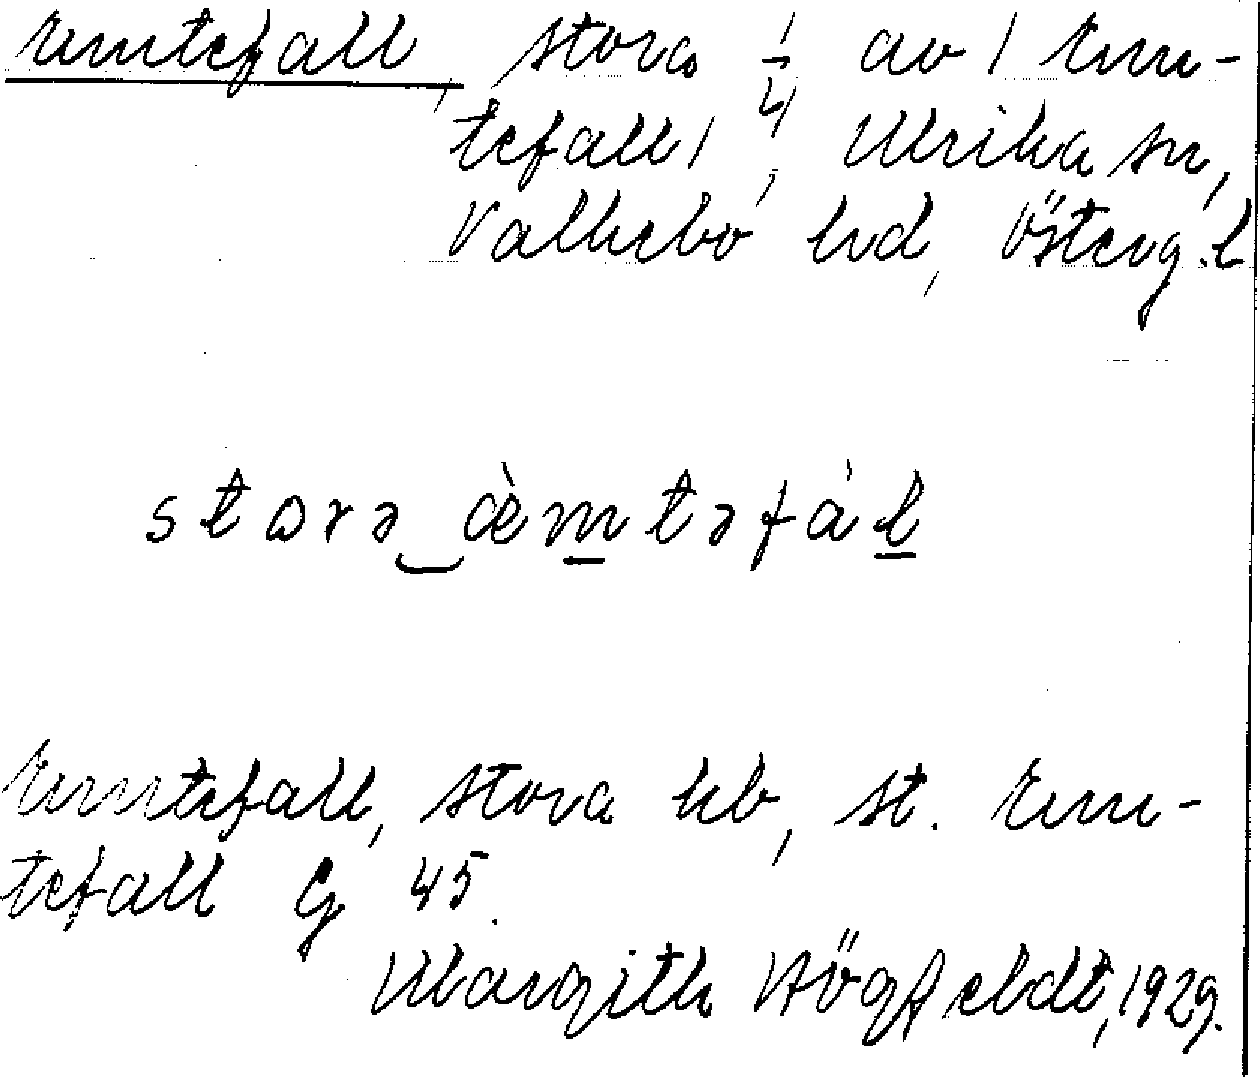 Emtefall, stora ¼ av 1 Em-
tefall 1, Ulrika sn,
Valkebo hd, Österg. l
storə ‿ æ̀m̲təfál̲
Emtefall, stora hb, st. Em-
tefall G 45.
Margith Högfeldt, 1929.